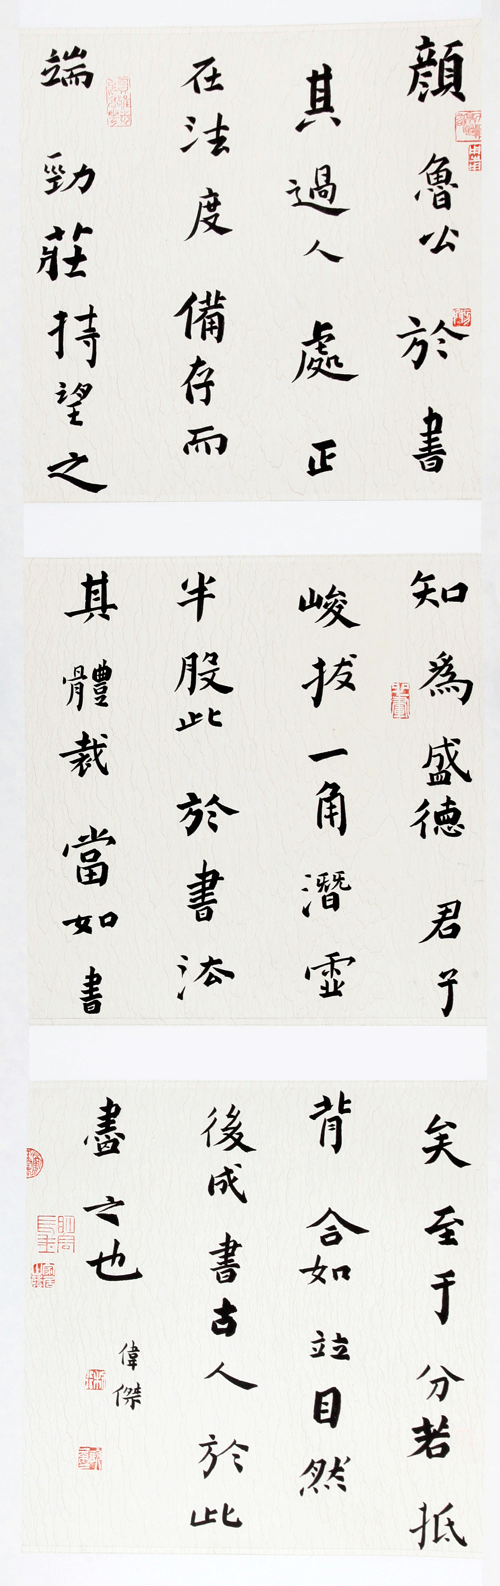 顔魯公於書
其過人處正
在法度備存而
端勁莊持望之
知爲盛德君子
峻拔一角潛虛
半股此於書法
其體裁當如書
矣至于分若抵
背合如竝目然
後成書古人於此
盡之也
偉傑